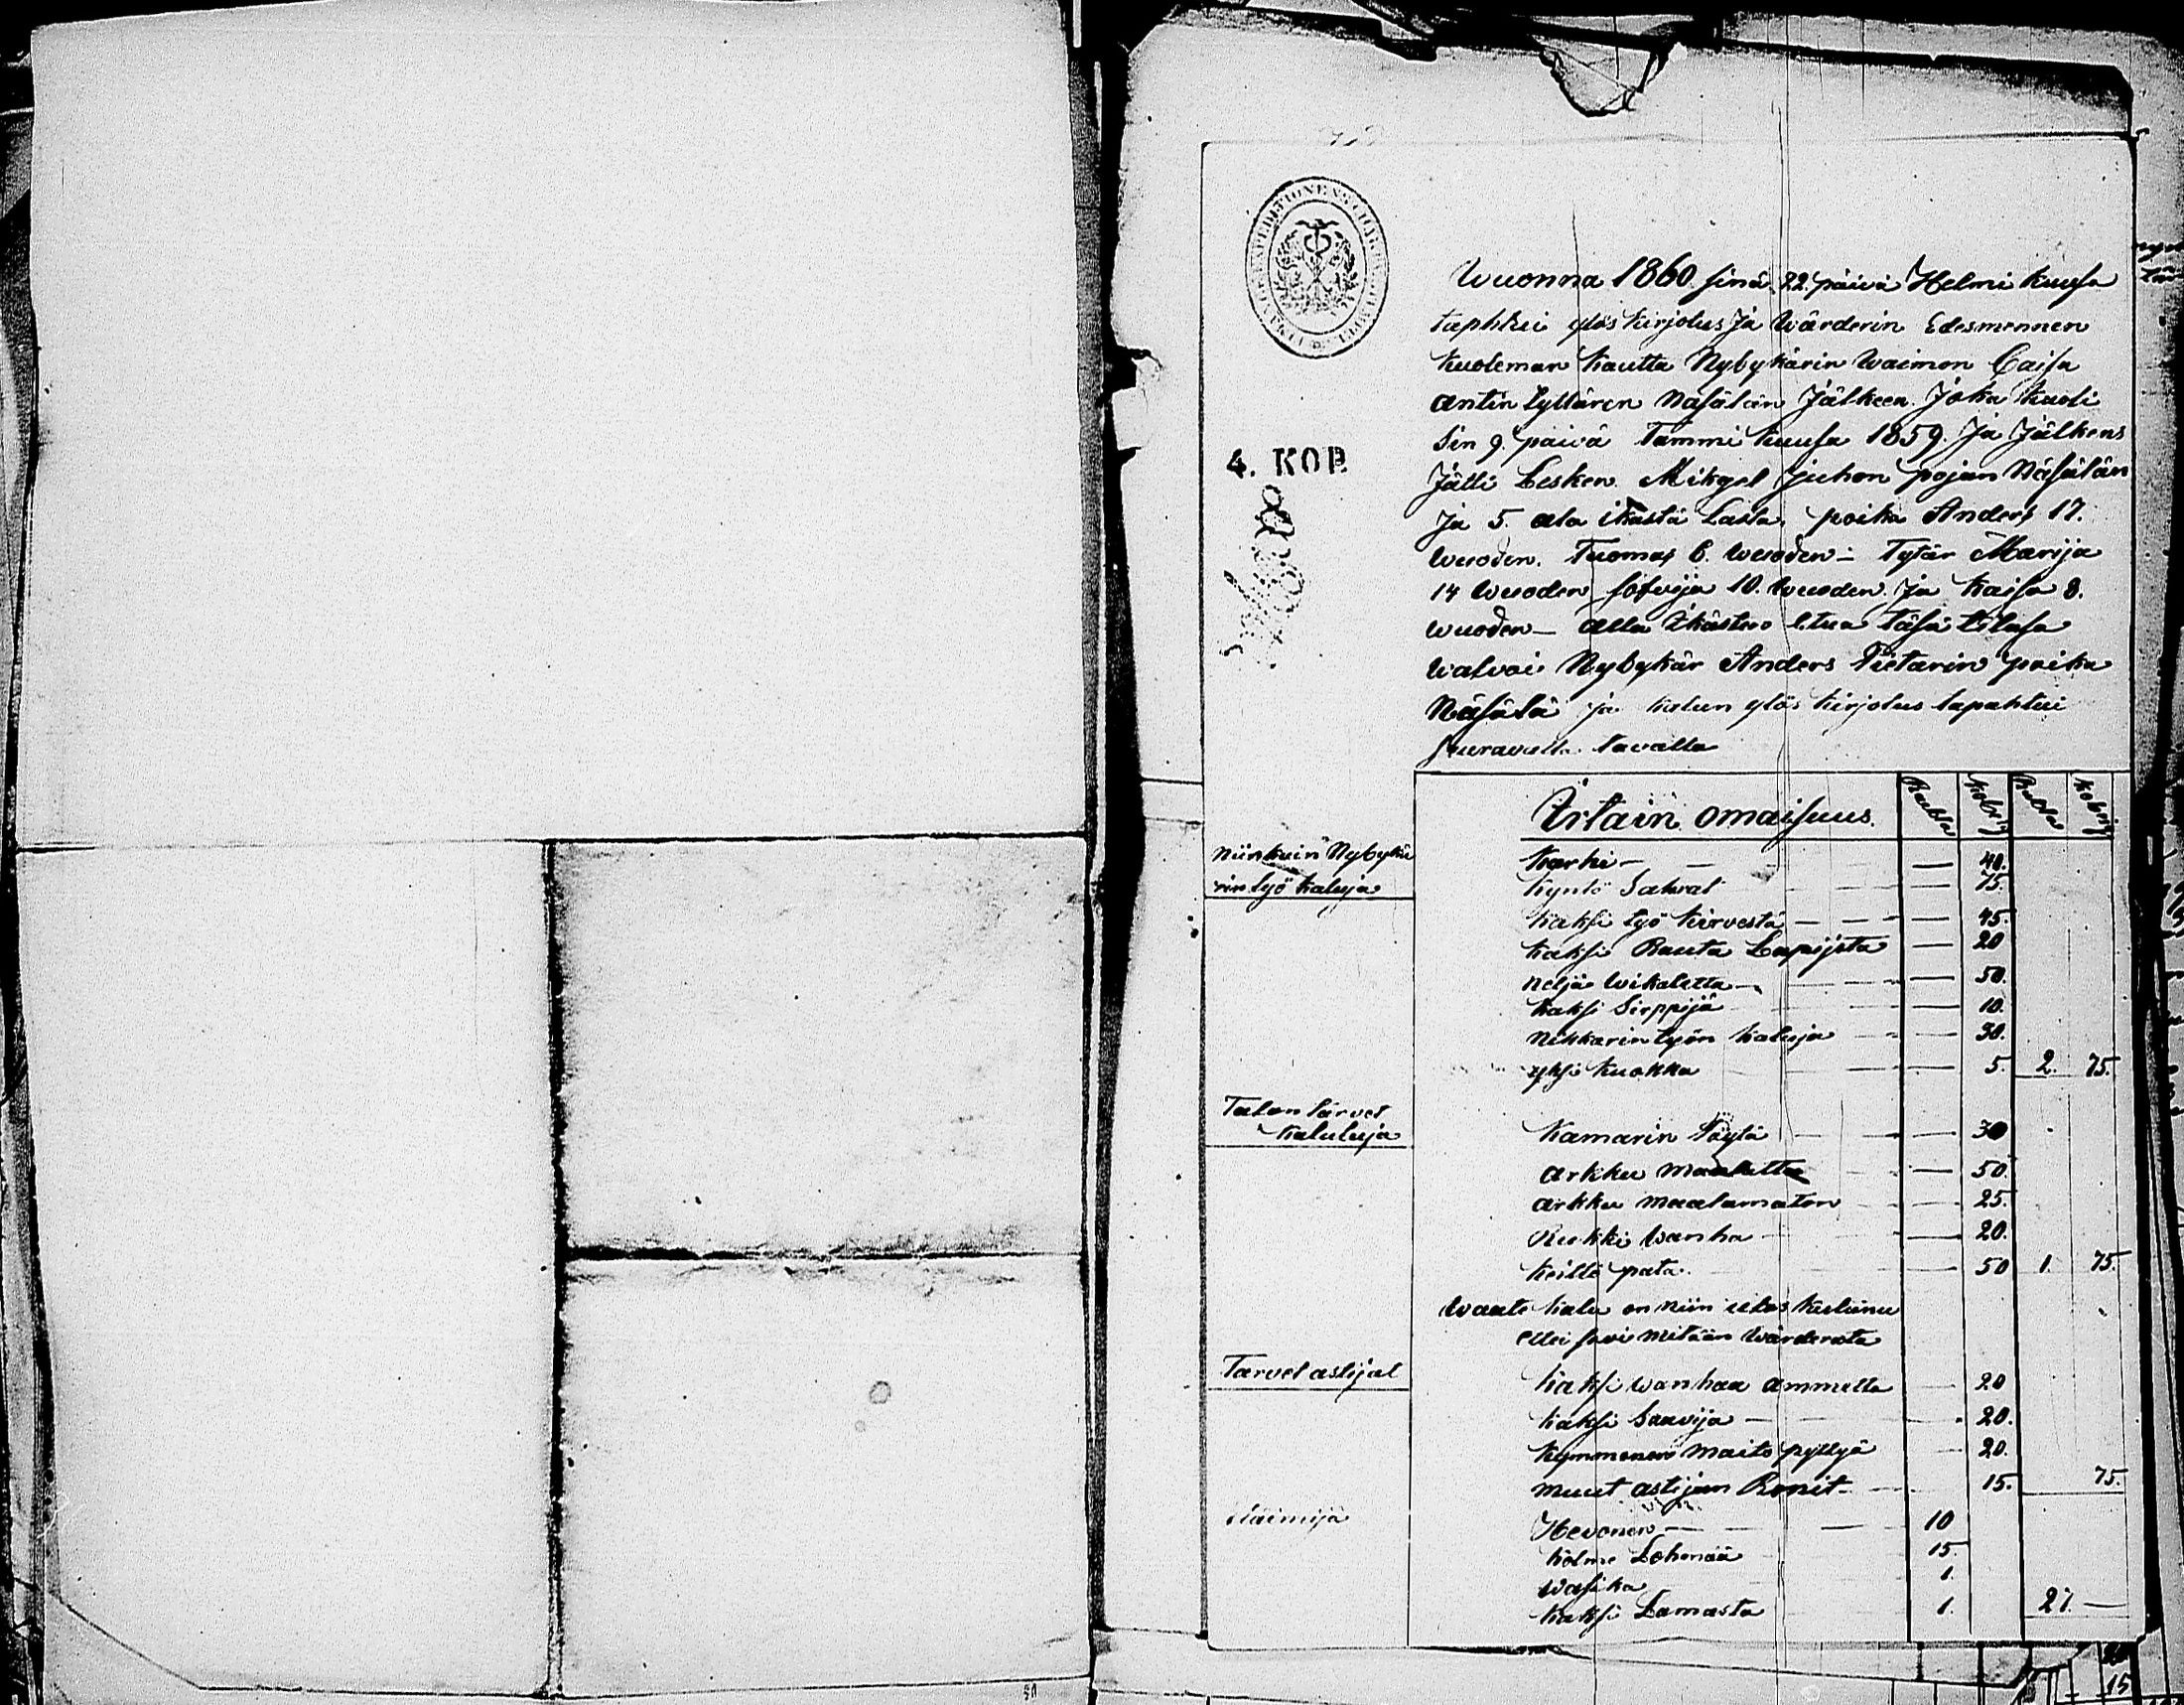 Wuonna 1860 sinä 22 päivä Helmi kuusa
taphtui ylöskirjotus Ja Wärderin Edesmennen
kuoleman kautta Nybykärin waimon Caisa
antin tyttären Näsälän Jälkeen. Joka kuoli
sin 9. päivä Tammi kuusa 1859. Ja Jälkens
Jätti Lesken Mikgel Juhon pojan Näsälän
Ja 5. ala ikästä Lasta, poika Anders 17.
wuoden. Tuomas 6. wuoden - Tytär Marija
14 wuoden sofvija 10. wuoden. Ja Kaisa 8.
wuoden - alla ikästen etua täsä tilasa
walvoi Nybykär Anders Pietarin poika
Näsälä ja kalun ylös kirjotus tapahtui
seuravalla tavalla
4. KOP.
Irtain omaisuus.
Rubla kobeg Rubla kobeg
Niinkuin Nybykä
rin työ kaluja
karhi - 40.
kyntö Sahrat 75.
kaksi työ kirvestä - 45.
kaksi Rauta Lapijota - 20
neljä wikatetta - 50.
kaksi Sirppijä 10.
nikkarin työn kaluja 30.
yksi kuokka 5. 2. 75.
Talon tarvet
kaluluja
kamarin Pöytä 30
arkku maalattu 50.
arkku maalamaton 25.
Rukki wanha 20.
keitto pata. 50 1. 75.
waate kalu on niin ulos kulunu
ettei sovi mitään wärderata
Tarvet astijat
kaksi wanhaa ammetta 20
kaksi Saavija - 20.
kymmenen maito pyttyä 20.
muut astijan Ronit - 15. 75.
Eläimijä
Hevonen - 10
kolme Lehmää 15.
wasika 1.
kaksi Lamasta 1. 27. -